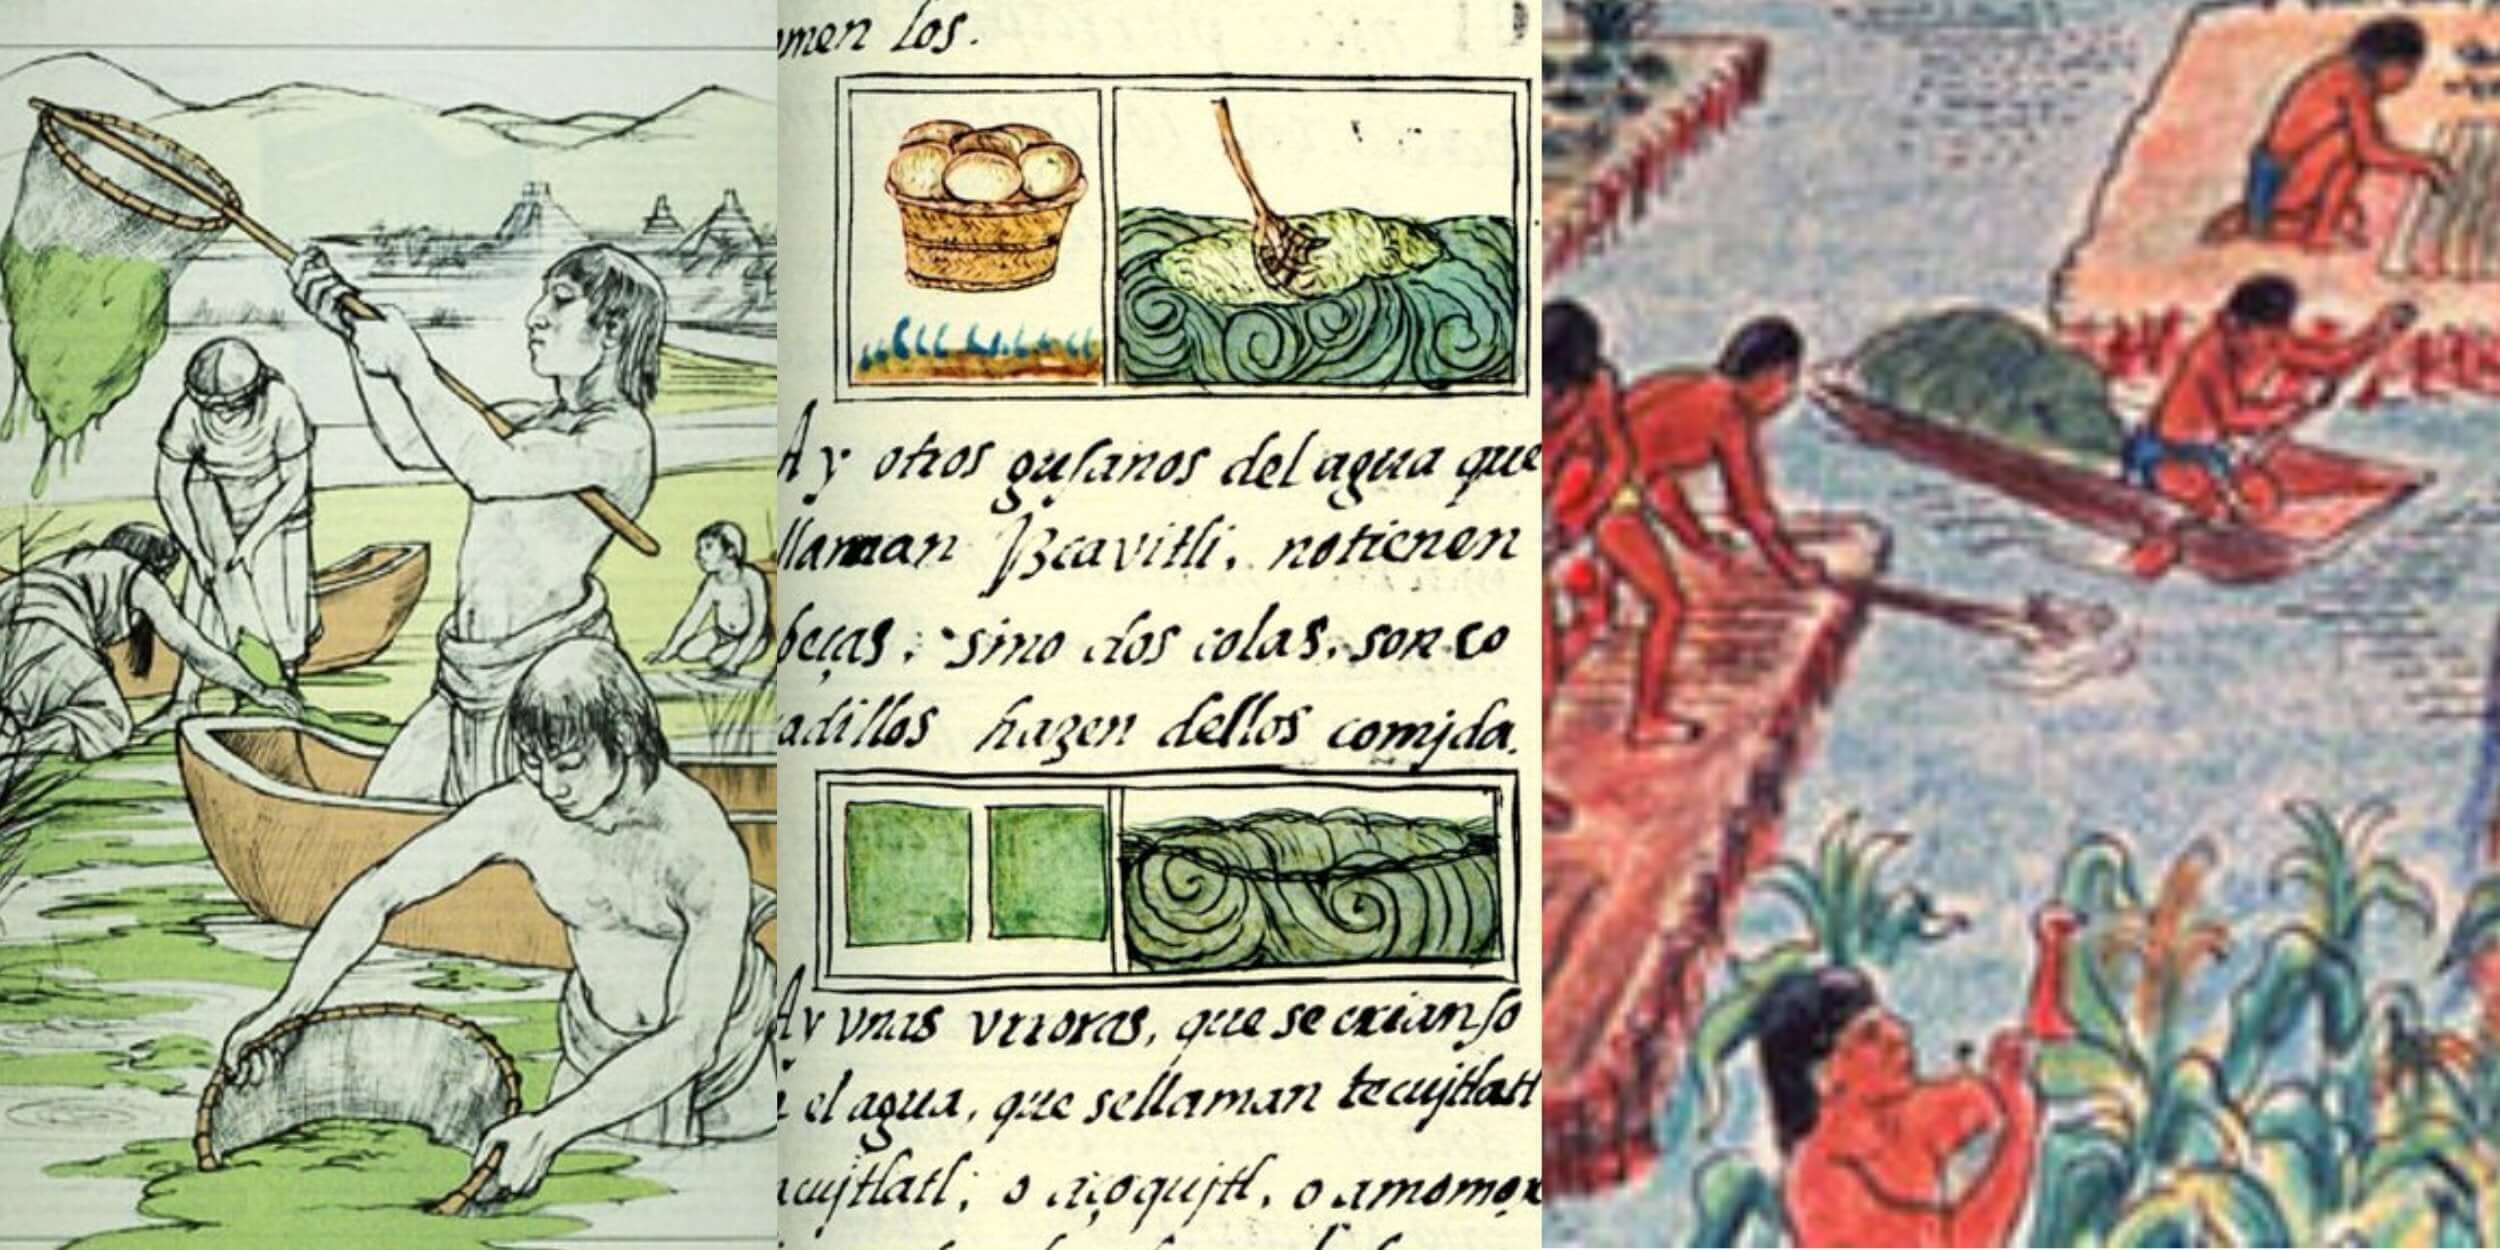 men los.
Ay otros gusanos del agua que
llaman Izcavitli, notienen
beças, sino dos colas, son co
adillos hazen dellos comjda.
Ay vnas que se crian so
el agua, que sellaman tecujtlatl
acujtlatl, o açoqujtl, o amomox